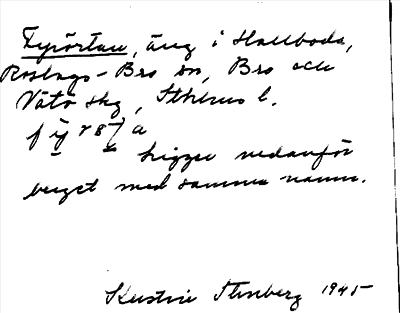 Fyrörtan, äng i Hallboda,
Roslags-Bro sn, Bro och
Vätö skg, Sthlms l.
ligger nedanför
berget med samma namn.
Kerstin Stenberg 1945